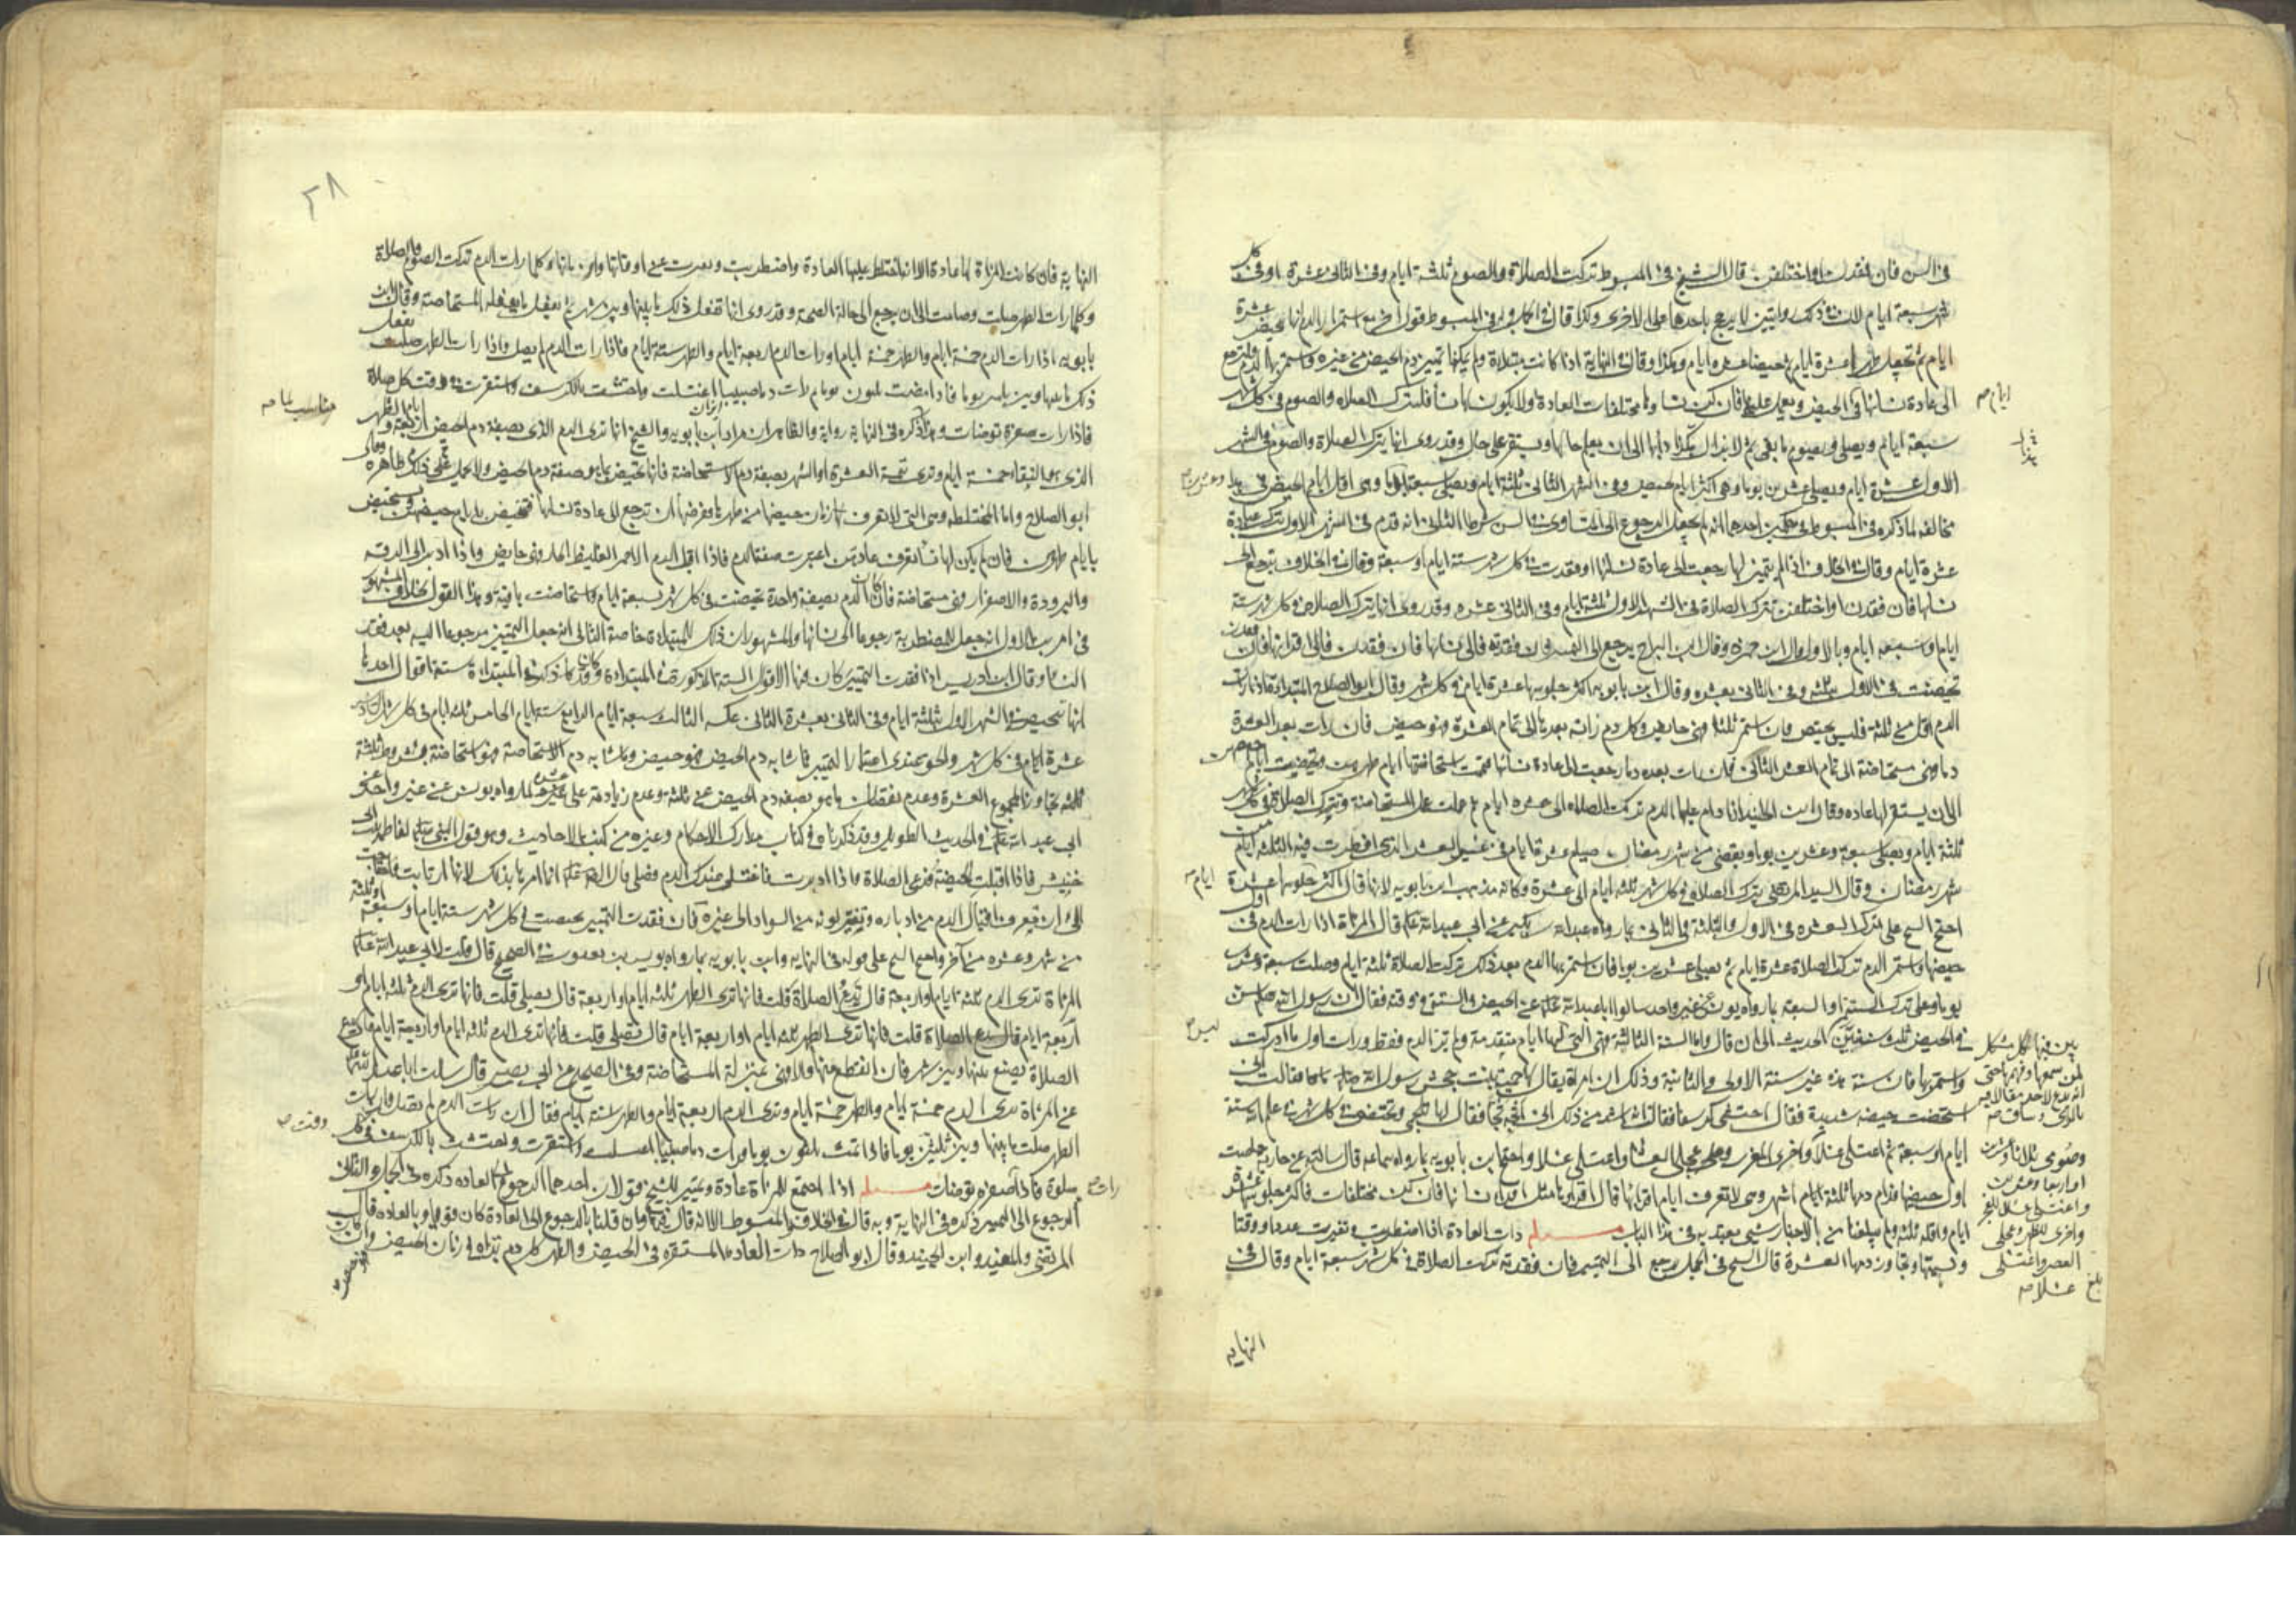 في السن فان فقدن او اختلفن قال الشيخ في المبسوط تركت الصلاة والصوم ثلثة ايام وفي الثاني عشرة او في كل
شهر سبعة ايام لان في ذلك روايتين لا يرجح باحدهما على الاخرى وكذا قال في الجمل وفي المبسوط قول اخر استمرار الدم انها تحيض عشرة
ايام ثم تجعل طهرا عشرة ايام ثم تحيضا عشرة ايام وهكذا وقال في النهاية اذا كانت مبتدأة ولم يمكنها تمييز دم الحيض من غيره واستمر بها الدم فلترجع
الى عادة نسائها في الحيض وتعمل عليه فان كن نساؤها مختلفات العادة او لا يكون لها نسأ فلتترك الصلاة والصوم في كل شهر
سبعة ايام وتصلى وتصوم ما بقى ثم لا يزال هكذا دأبها الى ان يعلم حالها وتستقر على حال وقد روى انها تترك الصلاة والصوم في الشهر
الاول عشرة ايام وتصلى عشرين يوما وهي اكثر ايام الحيض وفي الشهر الثاني ثلثة ايام وتصلى سبعة وهي اقل ايام الحيض
مخالفة لما ذكره في المبسوط في حكمين احدهما انه لم يجعل الرجوع الى التساوى في السن شرطا الثاني انه قدم في الشهر الاول ترك عبادة
عشرة ايام وقال في الخلاف اذا لم يتميز لها رجعت الى عادة نسائها او فقدت في كل شهر ستة ايام او سبعة وقال في الخلاف ترجع الى
نسائها فان فقدن او اختلفن تترك الصلاة في الشهر الاول ثلثة ايام وفي الثاني عشرة وقد روى انها تترك الصلاة في كل شهر ستة
ايام او سبعة ايام وبالاول قال ابن حمزة وقال ابن البراج يرجع الى التمييز فان فقدته فالى نسائها فان فقدن فالى اقرانها فان فقدن
تحيضت في الاول بثلثة وفي الثاني بعشرة وقال ابن بابويه اكثر جلوسها عشرة ايام في كل شهر وقال ابو الصلاح المبتدأة اذا رات
الدم اقل من ثلثة فليس بحيض فان استمر ثلثا فهي حايض وكل دم راته بعدها الى تمام العشرة فهو حيض فان رات بعد العشرة
دما فهي مستحاضة الى تمام العشر الثاني فان رات بعده دما رجعت الى عادة نسائها فتممت استحاضتها ايام طهرهن وتحيضت ايام حيضهن
الى ان يستقر لها عادة وقال ابن الجنيد اذا دام عليها الدم تركت الصلاة الى عشرة ايام ثم عملت عمل المستحاضة وتترك الصلاة في كل شهر
ثلثة ايام وتصلى سبعة وعشرين يوما وتقضى من شهر رمضان صيام عشرة ايام في غير العشر الذي افطرت فيه الثلثة ايام من
شهر رمضان وقال السيد المرتضى تترك الصلاة في كل شهر ثلثة ايام الى عشرة وكانه مذهب ابن بابويه لانه قال اكثر جلوسها عشرة
احتج الشيخ على ترك العشرة في الاول والثلثة في الثاني بما رواه عبد الله بن بكير عن ابي عبد الله عليه السلام قال المرأة اذا رات الدم في اول
حيضها واستمر الدم تركت الصلاة عشرة ايام ثم تصلى عشرين يوما فان استمر بها الدم بعد ذلك تركت الصلاة ثلثة ايام وصلت سبعة وعشرين
يوما وعلى ترك الستة او السبعة بما رواه يونس عن غير واحد سالوا ابا عبد الله عليه السلام عن الحيض والسنة في وقته فقال ان رسول الله صلعم سن
في الحيض ثلث سنن الحديث الى ان قال واما السنة الثالثة فهي التي ليس لها ايام متقدمة ولم تر الدم قط ورات اول ما ادركت
واستمر بها فان سنة هذه غير سنة الاولى والثانية وذلك ان امرأة يقال لها حمنة بنت جحش رسول الله فقالت اني
استحضت حيضة شديدة فقال احتشى كرسفا فقالت انه اشد من ذلك اني اثجه ثجا فقال لها تلجمى وتحيضى في كل شهر في علم الله ستة
ايام او سبعة ثم اغتسلى غسلا واخرى المغرب وعجلى العشاء واغتسلى غسلا واحتج ابن بابويه بما رواه سماعة قال سالته عن جارية حاضت
اول حيضها فدام دمها ثلثة اشهر وهي لا تعرف ايام اقرائها قال اقراؤها مثل اقراء نسائها فان كن مختلفات فاكثر جلوسها عشرة
ايام واقله ثلثة ولم يبلغنا من الاخبار شيى يعتد به في هذا الباب مسئلة ذات العادة اذا اضطربت وتغيرت عددا ووقتا
ونسيتها وتجاوز دمها العشرة قال الشيخ في الجمل ترجع الى التمييز فان فقدته تركت الصلاة في كل شهر سبعة ايام وقال في
ايام صح
ايام صح
بين فيها كل مشكل
لمن سمعها وفهمها حتى
انه لم يدع لاحد مقالا فيه
بالرأى وساق صح
وصومى ثلثا وعشرين
او اربعا وعشرين
واغتسلى غسلا للفجر
واخرى الظهر وعجلى
العصر واغتسلى
غسلا صح
بلغ
ليس صح
النهاية
٢٨
النهاية فان كانت المرأة لها عادة الا انه اختلط عليها العادة واضطربت وتغيرت عن اوقاتها وازمانها فكلما رات الدم تركت الصوم والصلاة
وكلما رات الطهر صلت وصامت الى ان يرجع الى حالة الصحة وقد روى انها تفعل ذلك ما بينها وبين شهر ثم تفعل ما يفعله المستحاضة وقال ابن
بابويه اذا رات الدم خمسة ايام والطهر خمسة ايام او رات الدم اربعة ايام والطهر ستة ايام فاذا رات الدم لم تصل واذا رات الطهر صلت تفعل
ذلك ما بينها وبين ثلثين يوما فاذا مضت ثلثون يوما ثم رات دما صبيبا اغتسلت واحتشت بالكرسف واستثفرت في وقت كل صلاة
فاذا رات صفرة توضأت وما ذكره في النهاية رواية والظاهر ان مراد ابن بابويه والشيخ انها ترى الدم الذي بصفة دم الحيض اربعة
الذي هو النقاء خمسة ايام وترى تتمة العشرة او الشهر بصفة دم الاستحاضة فانها تتحيض بما هو بصفة دم الحيض ولا يحمل ذلك على ظاهره وقال
ابو الصلاح واما المختلطة وهي التي لا تعرف زمان حيضها من طهرها ففرضها ان ترجع الى عادة نسائها فتحيض بايام حيضهن وتستحيض
بايام طهرهن فان لم يكن لها نسأ تعرف عادتهن اعتبرت صفة الدم فاذا اقبل الدم الاحمر الغليظ الحار فهي حايض واذا ادبر الى الرقة
والبرودة والاصفرار فهي مستحاضة فان كان الدم بصفة واحدة تحيضت في كل شهر سبعة ايام واستحاضت باقيه وهذا القول يخالف المشهور
في امرين الاول انه جعل للمضطربة رجوعا الى نسائها والمشهور ان ذلك للمبتدأة خاصة الثاني انه جعل التمييز مرجوعا اليه بعد فقد
النسأ وقال ابن ادريس اذا فقدت التمييز كان فيها الاقوال الستة المذكورة في المبتدأة وكان قد ذكر في المبتدأة ستة اقوال احدها
انها تتحيض في الشهر الاول بثلثة ايام وفي الثاني بعشرة الثاني عكسه الثالث سبعة ايام الرابع ستة ايام الخامس ثلثة ايام في كل شهر السادس
عشرة ايام في كل شهر والحق عندى اعتبار التمييز فما شابه دم الحيض فهو حيض وما شابه دم الاستحاضة فهو استحاضة بشروط ثلثة
تجاوز المجموع العشرة وعدم نقصان ما هو بصفة دم الحيض عن ثلثة وعدم زيادته على عشرة لما رواه يونس عن غير واحد عن
ابي عبد الله عليه السلام في الحديث الطويل وقد ذكرناه في كتاب مدارك الاحكام وغيره من كتب الاحاديث وهو قول النبي لفاطمة بنت ابي
حبيش فاذا اقبلت الحيضة فدعى الصلاة واذا ادبرت فاغتسلى عنك الدم وصلى قال الصادق عليه السلام انما امرها بذلك لانها ارتابت فاحتاجت
الى ان تعرف اقبال الدم من ادباره وتغير لونه من السواد الى غيره فان فقدت التمييز تحيضت في كل شهر ستة ايام او سبعة او ثلثة
من شهر وعشرة من آخر واحتج الشيخ على قوله في النهاية وابن بابويه بما رواه يونس بن يعقوب في الصحيح قال قلت لابي عبد الله عليه السلام
المرأة ترى الدم ثلثة ايام او اربعة قال تدع الصلاة قلت فانها ترى الطهر ثلثة ايام او اربعة قال تصلى قلت فانها ترى الدم ثلثة ايام او
اربعة ايام قال تدع الصلاة قلت فانها ترى الطهر ثلثة ايام او اربعة ايام قال تصلى قلت فانها ترى الدم ثلثة ايام او اربعة ايام قال تدع
الصلاة تصنع ما بينها وبين شهر فان انقطع عنها والا فهي بمنزلة المستحاضة وفي الصحيح عن ابي بصير قال سالت ابا عبد الله عليه السلام
عن المرأة ترى الدم خمسة ايام والطهر خمسة ايام وترى الدم اربعة ايام والطهر ستة ايام فقال ان رات الدم لم تصل وان رات
الطهر صلت ما بينها وبين ثلثين يوما فاذا تمت ثلثون يوما فرات دما صبيبا اغتسلت واستثفرت واحتشت بالكرسف في كل
صلوة فاذا رات صفرة توضأت مسئلة اذا اجتمع للمرأة عادة وتمييز للشيخ قولان احدهما الرجوع الى العادة ذكره في الجمل والثاني
الرجوع الى التمييز ذكره في النهاية وبه قال في الخلاف والمبسوط الا انه قال فيهما وان قلنا بالرجوع الى العادة كان قويا وبالعادة قال
المرتضى والمفيد وابن الجنيد وقال ابو الصلاح ذات العادة المستقرة في الحيض والطهر كل دم تراه في زمان الحيض وان كان
وقت صح